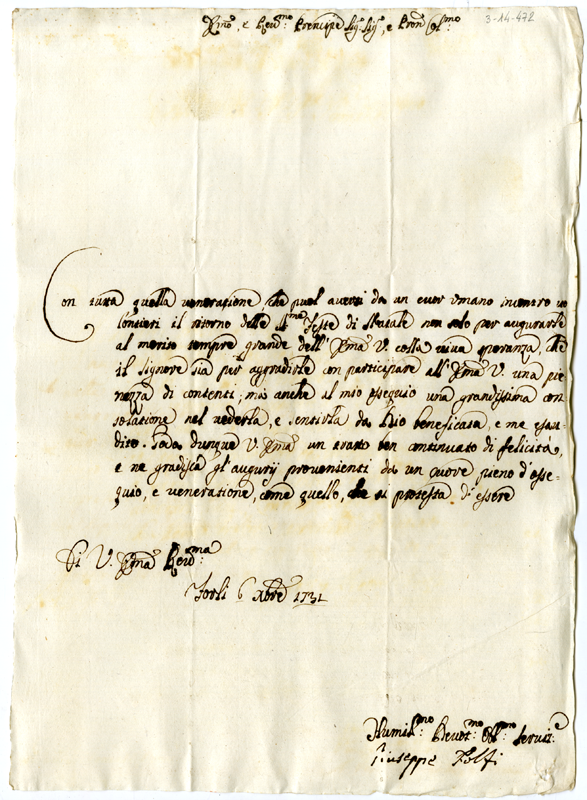 3-14-472
Emo, e Revmo: Prencipe Sig: Sig, e Pron Colmo:
Con tutta quella veneratione che puol aversi da un cuor umano incontro vo
lontieri il ritorno delle SSme Feste di Natale non solo per augurarle
al merito sempre grande dell' Ema V. colla viva speranza, che
il Signore sia per aggradirle con participare all' Ema V. una pie
nezza di contenti; mà anche al mio ossequio una grandissima con
solatione nel vederla, e sentirla da Dio beneficata, e me esau
dito. Goda dunque V. Ema un tratto ben continuato di felicità,
e ne gradisca gl' augurij provenienti da un cuore pieno d'osse-
quio, e veneratione, come quello, che si protesta d'essere
Di V. Ema Revma:
Forlì 6 Xbre 1731
Humilmo: Devotmo: Obmo: Servit:e
Giuseppe Folfi